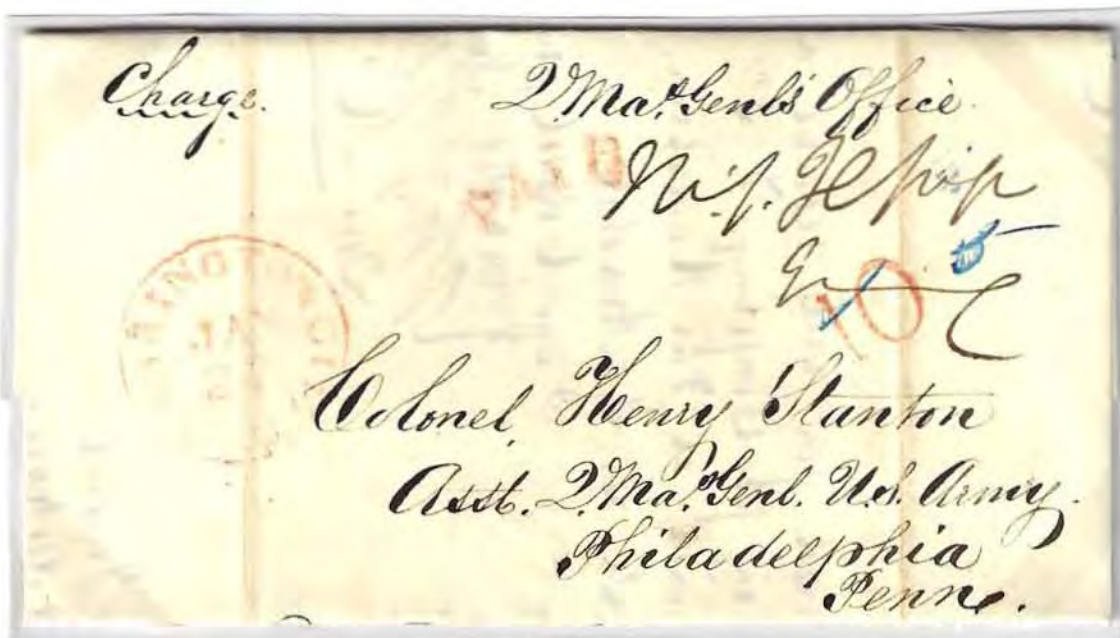 Charge.
Q.Mar. Genl's Office.
PAID
10
5
Colonel, Henry Stanton
Asst. Q.Mar. Genl. U.S. Army.
Philadelphia
Penna.